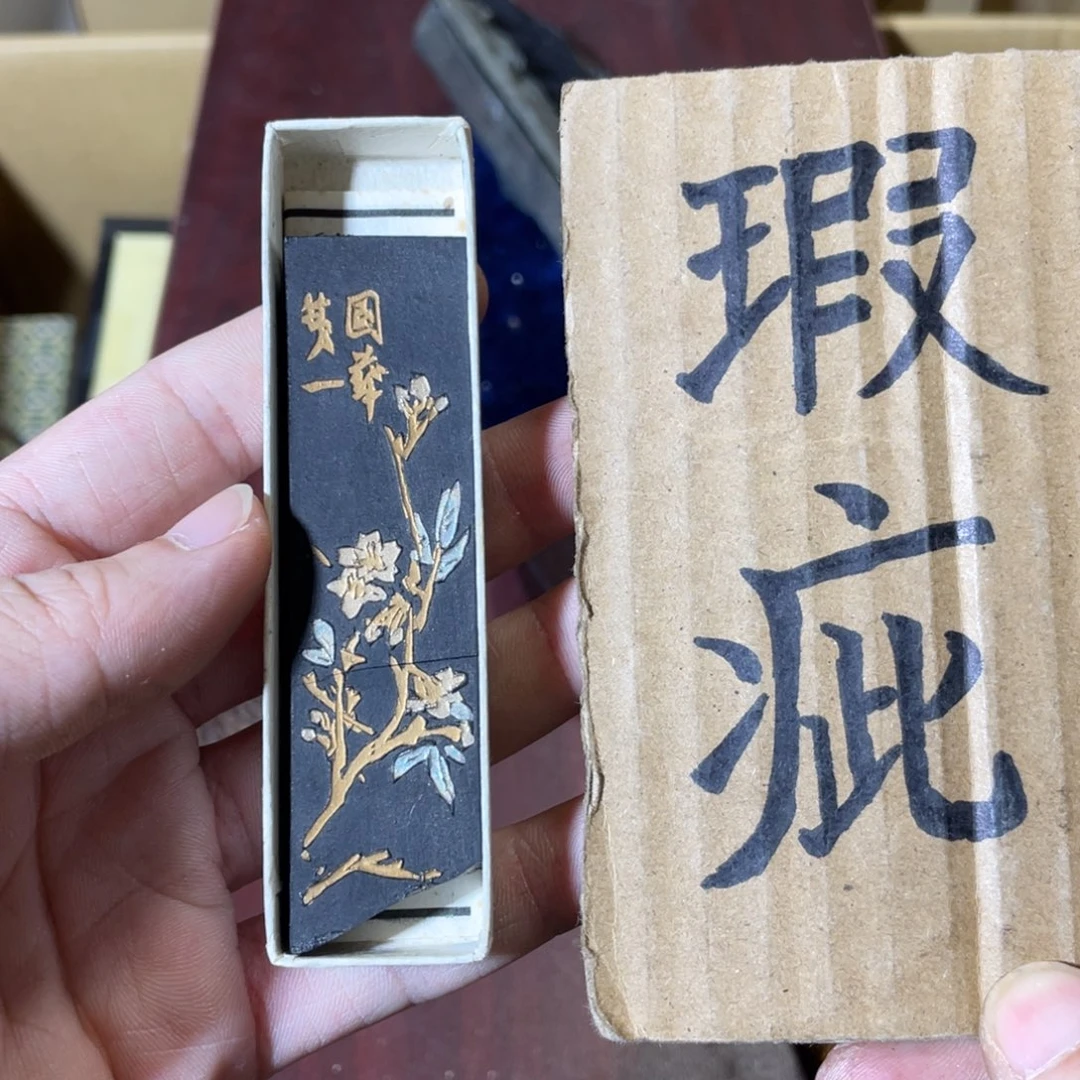 國華
一
瑕
疵